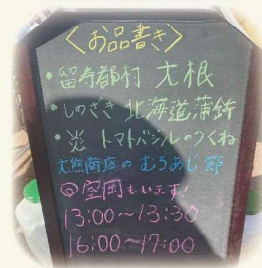 <お品書き>
・留寿都村 大根
・しのざき 北海道蒲鉾
・炎 トマトバジルのつくね
大熊商店の むろあじ節
もいます!
13:00～13:30
16:00～17:00